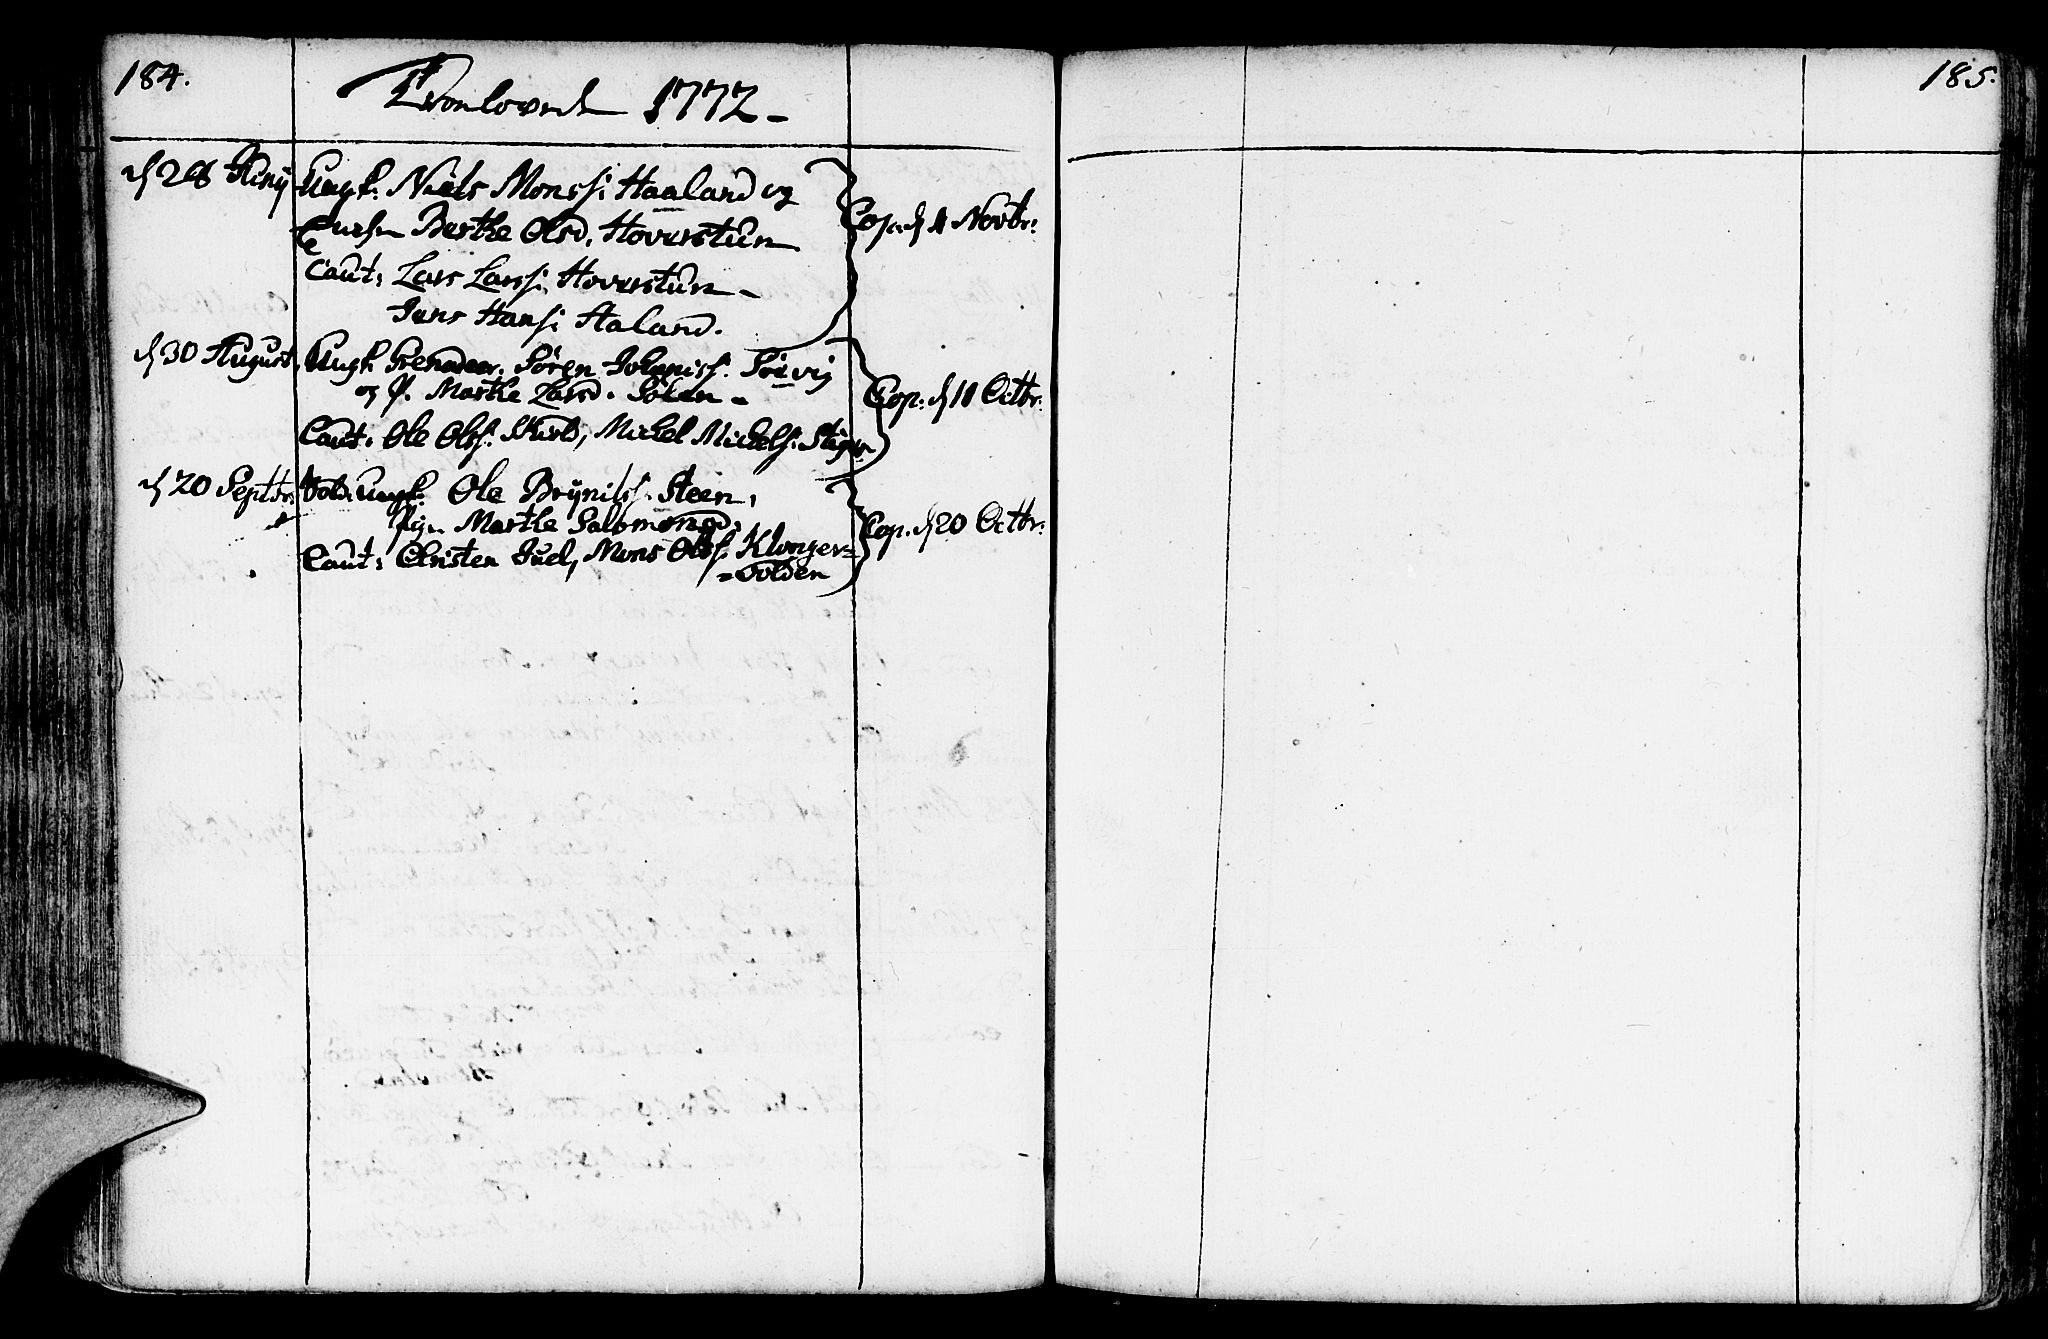 184.
Tronlovede 1772-
d 28 Junij Ungk. Niels Monss: Haaland og
Enchen Berthe Olsd. Hoverstun
Caut: Lars Larss: Hoverstun-
Jens Hanss: Haland.
Cop. d 4 Novbr:
d 30 August. Ungk Grenadeer. Sören Johanniss. Sörvig
og P. Marthe Larsd. Solem-
Caut. Ole Olss. Michel Michelss.
Cop: d 11 Octbr:
d 20 Septbr. Ungk. Ole Brynilss. Steen,
Pig. Marthe Salomonsd.
Caut: Christen Juel, Mons Olss. Klonger=
=volden
Cop. d 20 Octbr:
185.